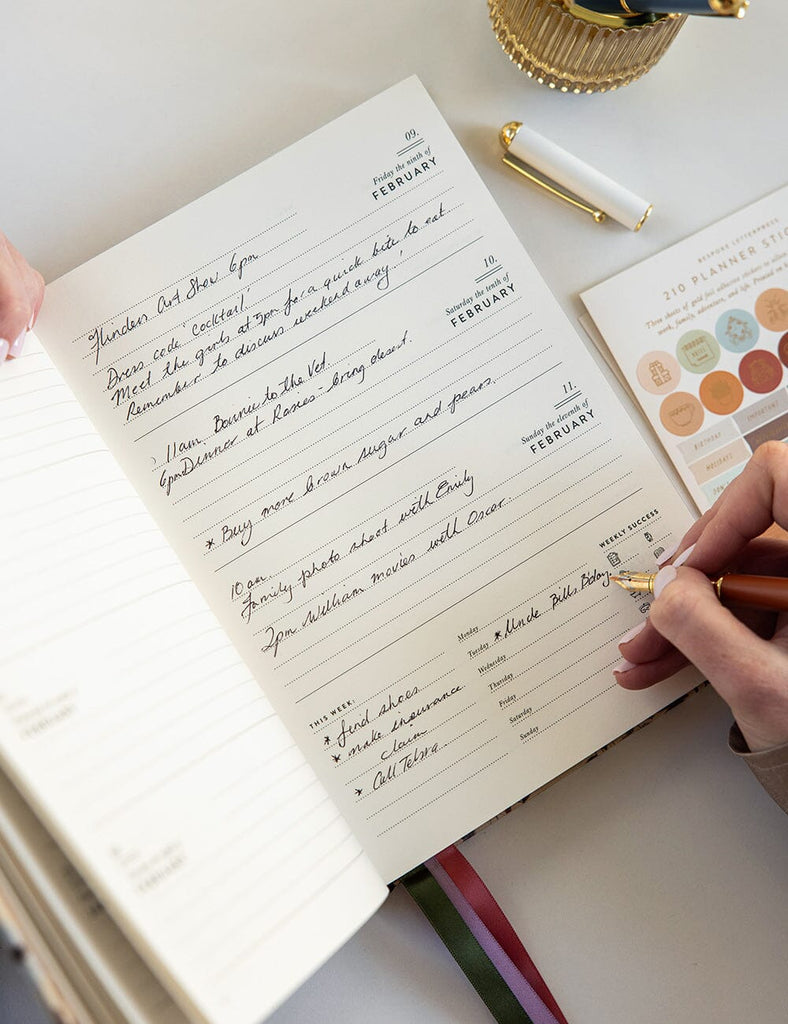 09.
Friday the ninth of
FEBRUARY
Flinders Art Show 6pm
Dress code 'cocktail'
Meet the girls at 5pm for a quick bite to eat.
Remember to discuss weekend away!
10.
Saturday the tenth of
FEBRUARY
11am. Bonnie to the Vet.
6pm Dinner at Rosies - bring desert.
* Buy more brown sugar and pears.
11.
Sunday the eleventh of
FEBRUARY
10am.
Family photo shoot with Emily
2pm William movies with Oscar.
THIS WEEK:
* find shoes
* make insurance
claim
* Call Telstra
WEEKLY SUCCESS
Monday
Tuesday * Uncle Bills B'day.
Wednesday
Thursday
Friday
Saturday
Sunday
BESPOKE LETTERPRESS
210 PLANNER STIC
Three sheets of gold foil adhesive stickers to
work, family, adventure, and life. Printed on
BIRTHDAY
IMPORTANT
HOLIDAYS
FEBRUARY
FEBRUARY